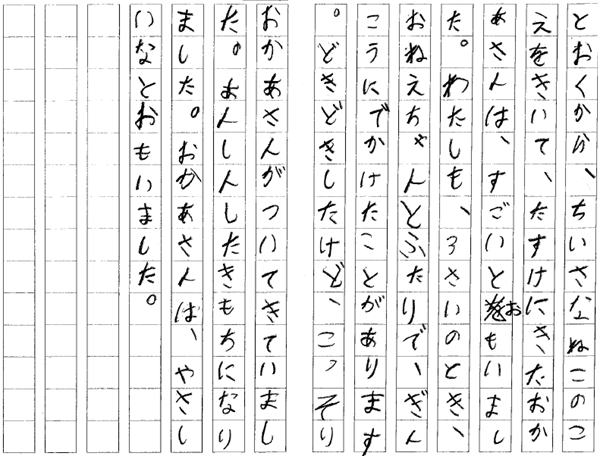 とおくから、ちいさなねこのこ
えをきいて、たすけにきたおか
あさんは、すごいとおもいまし
た。わたしも、３さいのとき、
おねえちゃんとふたりで、ぎん
こうにでかけたことがあります
。どきどきしたけど、こっそり
おかあさんがついてきていまし
た。あんしんしたきもちになり
ました。おかあさんは、やさし
いなとおもいました。